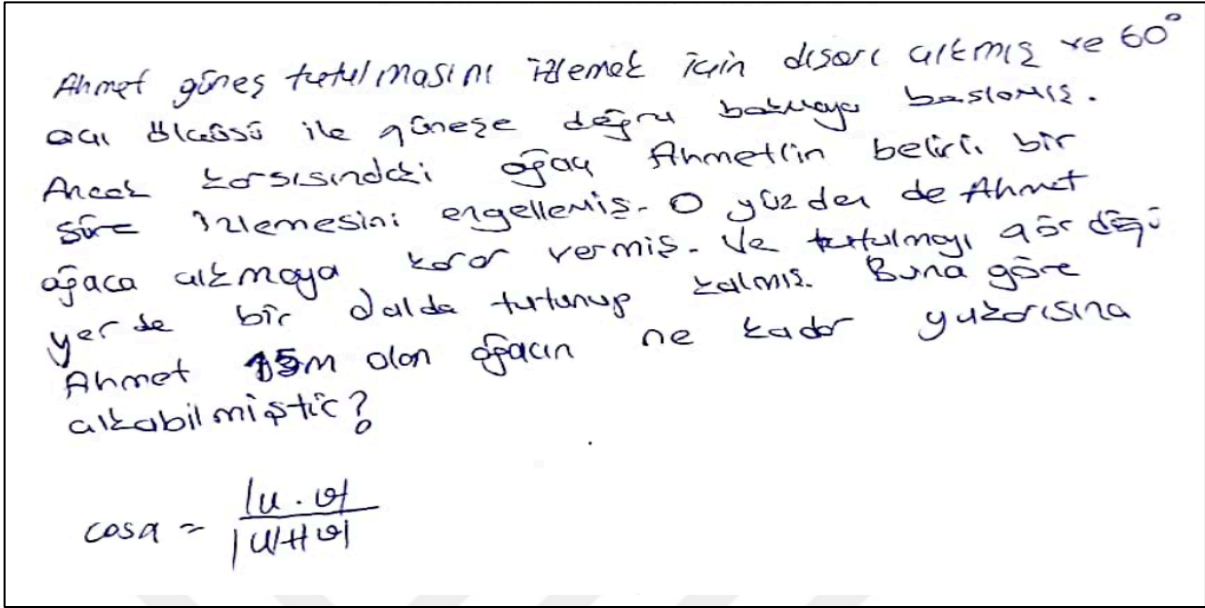 Ahmet güneş tutulmasını izlemek için dışarı çıkmış ve 60°
açı ölçüsü ile güneşe doğru bakmaya başlamış.
Ancak karşısındaki ağaç Ahmet'in belirli bir
süre izlemesini engellemiş. O yüzden de Ahmet
ağaca çıkmaya karar vermiş. Ve tutulmayı gördüğü
yerde bir dalda tutunup kalmış. Buna göre
Ahmet 15m olan ağacın ne kadar yukarısına
çıkabilmiştir?
cosα = |u.v| / |u||v|